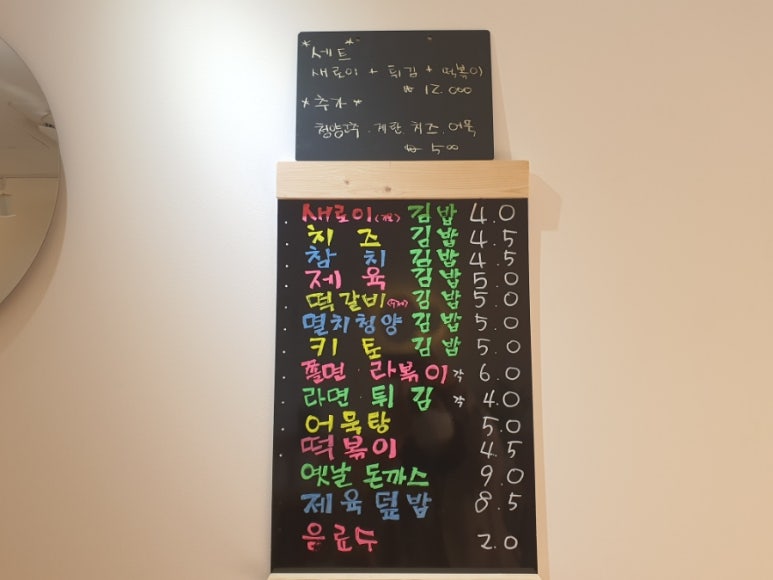 *세트*
새로이 + 튀김 + 떡볶이
₩ 12.000
*추가*
청양고추. 계란. 치즈. 어묵
₩ 500
새로이(기본) 김밥 4.0
치즈 김밥 4.5
참치 김밥 4.5
제육 김밥 5.0
떡갈비(수제) 김밥 5.0
멸치청양 김밥 5.0
키토 김밥 5.0
쫄면 · 라볶이 각 6.0
라면 튀김 각 4.0
어묵탕 5.0
떡볶이 4.5
옛날 돈까스 9.0
제육덮밥 8.5
음료수 2.0